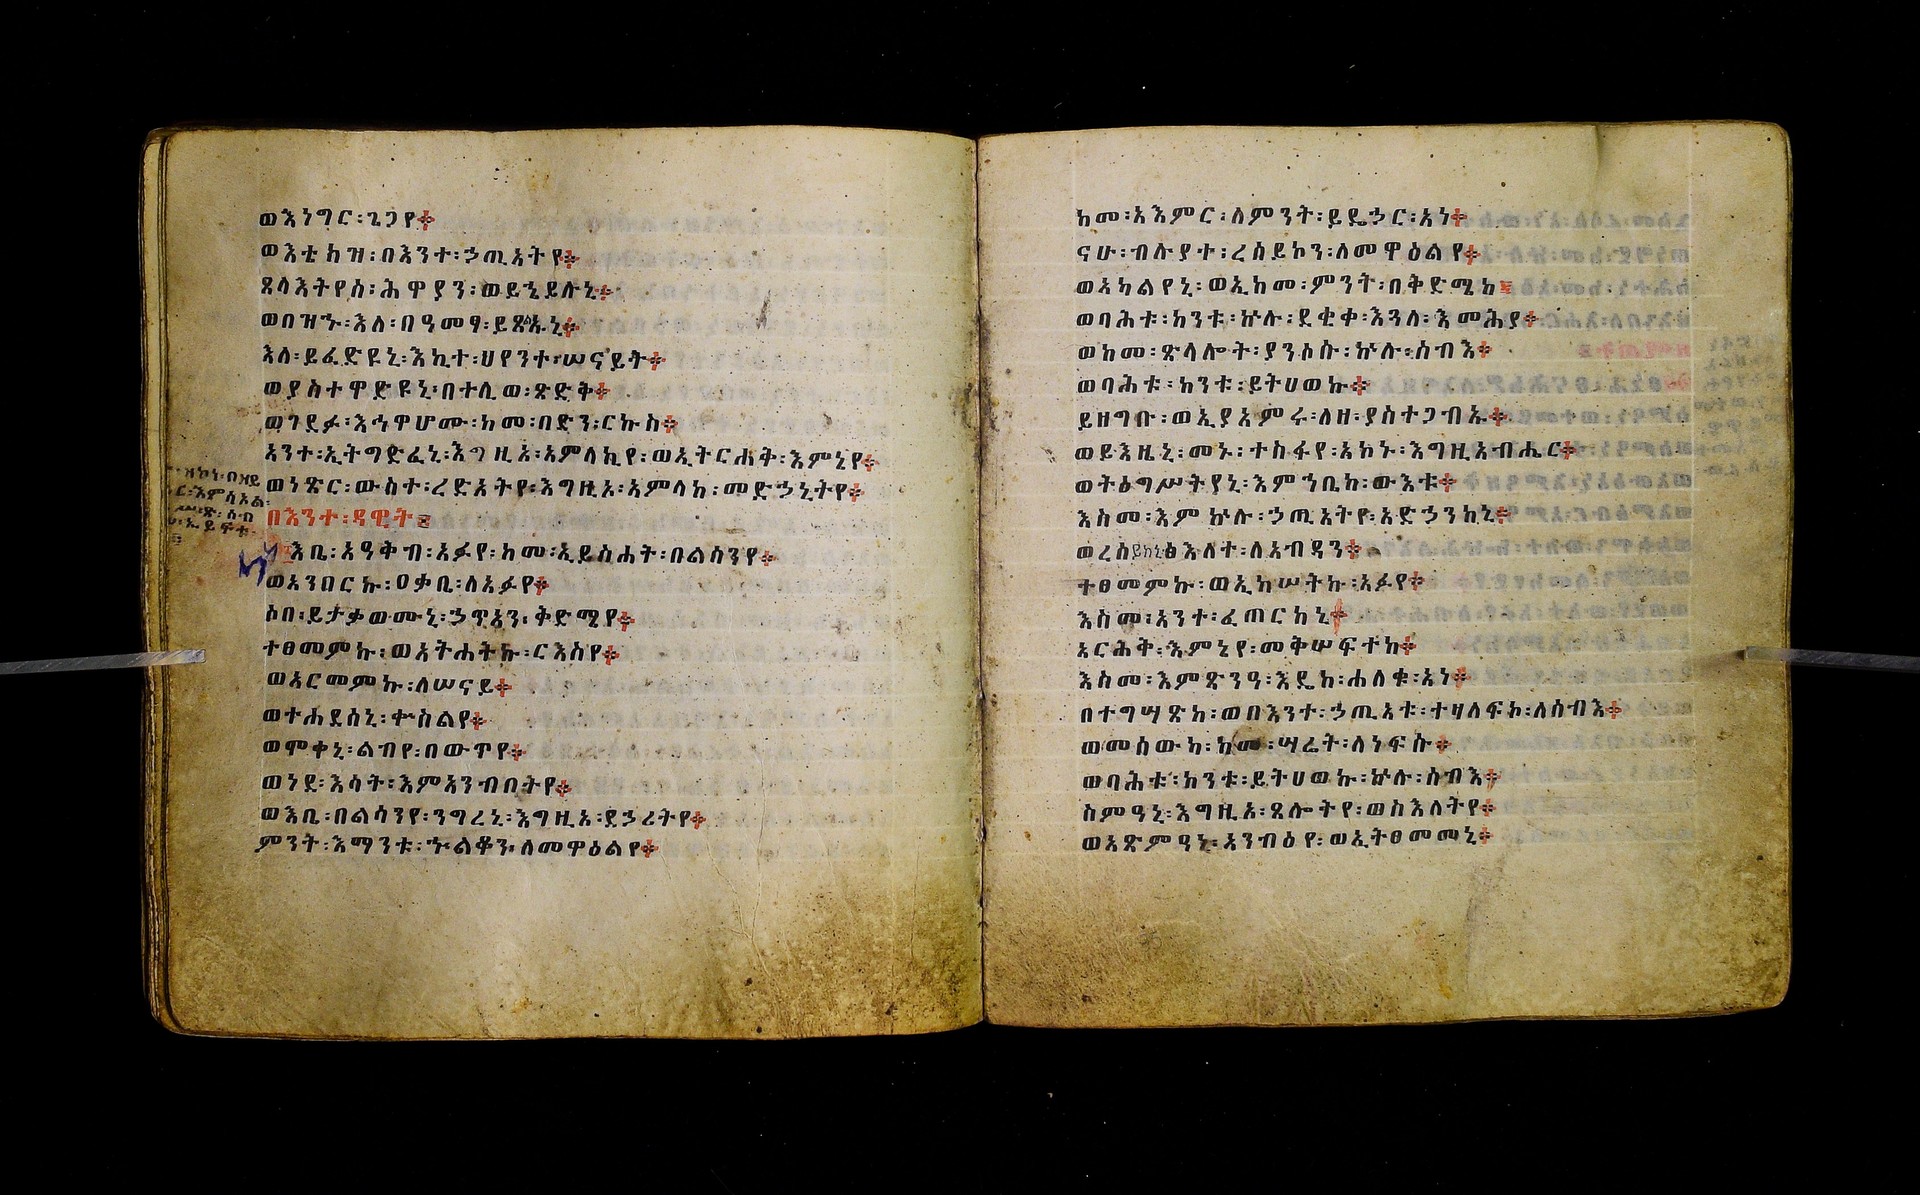 ወእነግር፡ጌጋየ፨
ወእቴክዝ፡በእንተ፡ኃጢአትየ፨
ጸላእትየሰ፡ሕዋያን፡ወይኄይሉኒ፨
ወበዝኁ፡እለ፡በዓመፃ፡ይጸልኡኒ፨
እለ፡ይፈድዩኒ፡እኪተ፡ህየንተ፡ሠናይት፨
ወያስተዋድዩኒ፡በተሊወ፡ጽድቅ፨
ወገደፉ፡እኅዋሆሙ፡ከመ፡በድን፡ርኩስ፨
አንተ፡ኢትግድፈኒ፡እግዚአ፡አምላኪየ፡ወኢትርሐቅ፡እምኔየ፨
ወነጽር፡ውስተ፡ረድኦትየ፡እግዚአ፡አምላከ፡መድኃኒትየ፨
በእንተ፡ዳዊት፡
እቤ፡አዓቅብ፡አፉየ፡ከመ፡ኢይስሐት፡በልሳንየ፨
ወአንበርኩ፡ዐቃቤ፡ለአፉየ፨
ሶበ፡ይታቃወሙኒ፡ኃጥአን፡ቅድሜየ፨
ተፀመምኩ፡ወአትሐትኩ፡ርእስየ፨
ወአርመምኩ፡ለሠናይ፨
ወተሐደሰኒ፡ቍስልየ፨
ወሞቀኒ፡ልብየ፡በውጥየ፨
ወነደ፡እሳት፡እምአንብቦትየ፨
ወእቤ፡በልሳንየ፡ንግረኒ፡እግዚአ፡ደኃሪትየ፨
ምንት፡እማንቱ፡ኍልቆን፡ለመዋዕልየ፨
ከመ፡አእምር፡ለምንት፡ይዴኃር፡አነ፨
ናሁ፡ብሉያተ፡ረሰይኮን፡ለመዋዕልየ፨
ወአካልየኒ፡ወኢከመ፡ምንት፡በቅድሜከ፨
ወባሕቱ፡ከንቱ፡ኵሉ፡ደቂቀ፡እጓለ፡እመሕያ፨
ወከመ፡ጽላሎት፡ያንሶሱ፡ኵሉ፡ሰብእ፨
ወባሕቱ፡ከንቱ፡ይትሀወኩ፨
ይዘግቡ፡ወኢያአምሩ፡ለዘ፡ያስተጋብኡ፨
ወይእዜኒ፡መኑ፡ተስፋየ፡አኮኑ፡እግዚአብሔር፨
ወትዕግሥትየኒ፡እምኀቤከ፡ውእቱ፨
እስመ፡እምኵሉ፡ኃጢአትየ፡አድኃንከኒ፨
ወረሰይከኒ፡ፅእለተ፡ለአብዳን፨
ተፀመምኩ፡ወኢከሠትኩ፡አፉየ፨
እስመ፡አንተ፡ፈጠርከኒ፨
አርሕቅ፡እምኔየ፡መቅሠፍተከ፨
እስመ፡እምጽንዓ፡እዴከ፡ሐለቁ፡አነ፨
በተግሣጽከ፡ወበእንተ፡ኃጢአቱ፡ተዛለፍኮ፡ለሰብእ፨
ወመሰውካ፡ከመ፡ሣሬት፡ለነፍሱ፨
ወባሕቱ፡ከንቱ፡ይትሀወኩ፡ኵሉ፡ሰብእ፨
ስምዓኒ፡እግዚአ፡ጸሎትየ፡ወስእለትየ፨
ወአጽምዓኒ፡አንብዕየ፡ወኢትፀመመኒ፨